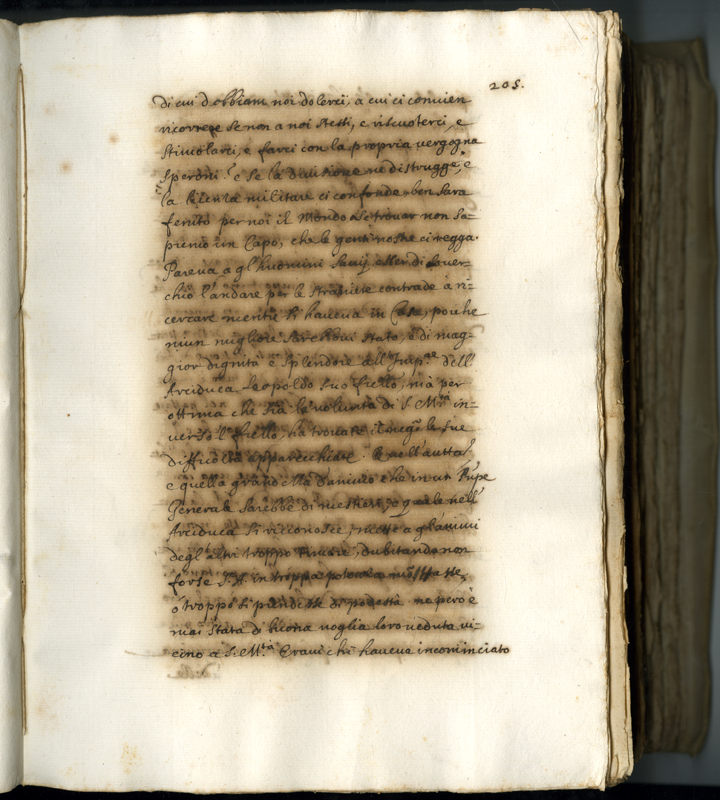 205.
di cui dobbiam noi dolerci, a cui ci convien
ricorrere se non a noi stessi, e riscuoterci, e
stimolarci, e farci con la propria vergogna
speroni? e se la divisione ne distrugge, e
la licenza militare ci confonde, ben sarà
ferito per noi il Mondo se trovar non sa-
premo un Capo, che le genti nostre ci regga.
Pareva a gl'huomini savij esser di sover-
chio l'andare per le straniere contrade a ri-
cercare mentre si haveva in Casa, poiche
niun migliore sarebbevi stato, e di mag-
gior dignità e splendore all' Imp.re dell'
Arciduca Leopoldo suo fratello, mà per
ottima che sia la volunta di S. M.tà in-
verso'l fratello, ha trovate il
difficoltà apparecchiate
e quella grado che in un Prñpe
Generale sarebbe di mestiere, e quale nell'
Arciduca si riconosce, mette a gl'animi
degl'altri troppo timore, dubitando non
forse S. A. in troppa potenza
ò troppo si prendesse di podestà ne però è
mai stata di buona voglia loro veduta vi-
cino a S. M.tà Eravi chi haveva incominciato